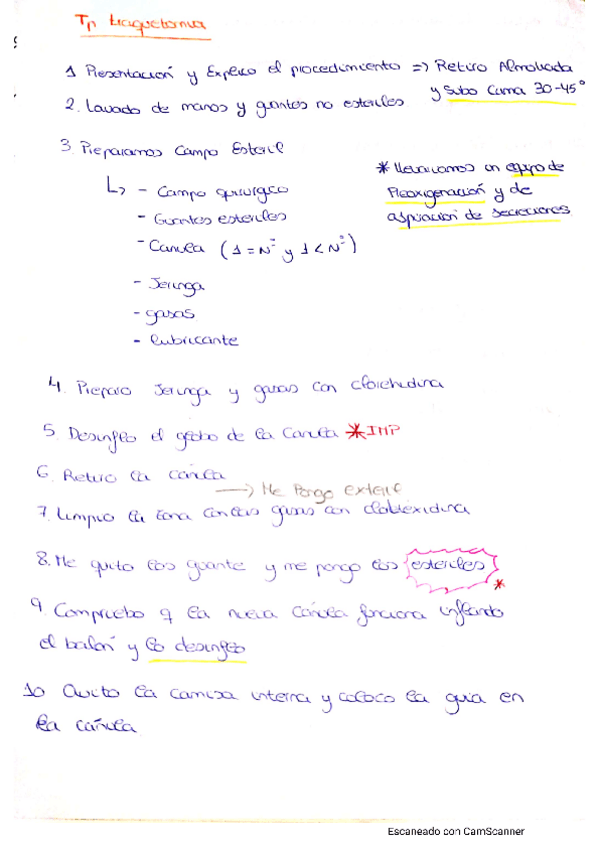 Tp traqueotomia
1 Presentación y Explico el procedimiento => Retiro Almohada
y Subo Cama 30-45°
2. Lavado de manos y guantes no esteriles
3. Preparamos Campo Esteril
↳ - Campo quirurgico
- Guantes esteriles
- Canula (1 = Nº y 1 < Nº)
- Jeringa
- gasas
- lubricante
* Llevaremos un equipo de
Preoxigenación y de
aspiracion de secreciones
4. Preparo Jeringa y gasas con
5. Desinflo el globo de la Canula * IMP
6. Retiro la canula
→ Me Pongo esteril
7. Limpio la zona con las gasas con
8. Me quito los guante y me pongo los esteriles *
9. Compruebo q la nueva Cánula funciona inflando
el balón y lo desinflo
10 Quito la camisa interna y coloco la guia en
la cánula
Escaneado con CamScanner